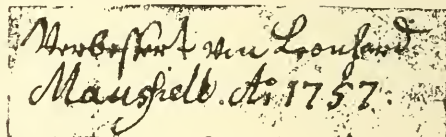 Verbessert von Leonhard
Maushell. Ao 1757.